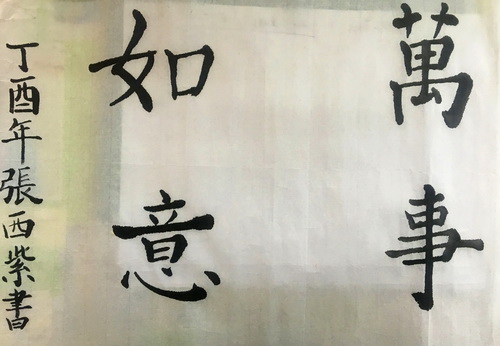 萬事
如意
丁酉年張西紫書